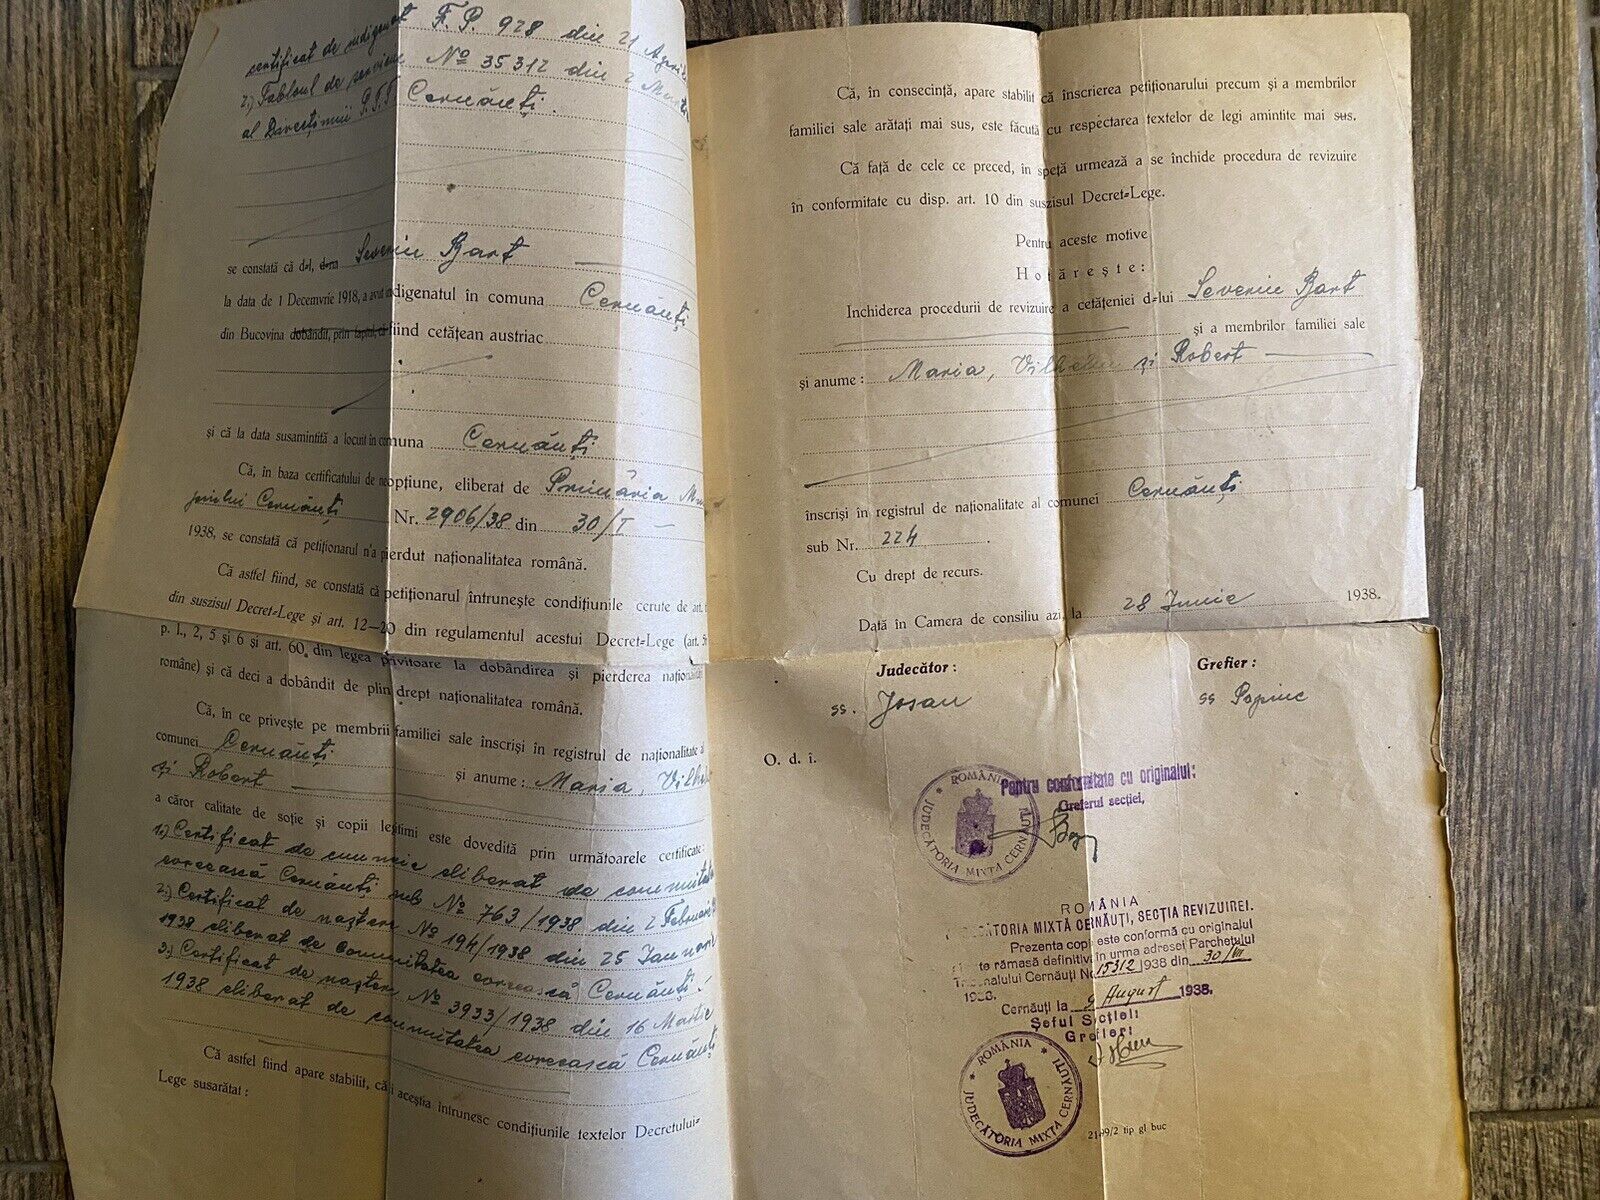 certificat de indigenat F. P. 928 din 21 Aprilie
2.) Tabloul de serviciu No 35312 din 2 Martie
al Direcțiunii P.T.T. Cernăuți.
se constată că d-l, d-na Severin Bart
la data de 1 Decemvrie 1918, a avut indigenatul în comuna Cernăuți
din Bucovina dobândit, prin faptul, că fiind cetățean austriac
și că la data susamintită a locuit în comuna Cernăuți
Că, în baza certificatului de neopțiune, eliberat de Primăria Mu
Cernăuți Nr. 2906/38 din 30/I
1938, se constată că petiționarul n'a pierdut naționalitatea română.
Că astfel fiind, se constată că petiționarul întrunește condițiunile cerute de art.
din suszisul Decret-Lege și art. 12—20 din regulamentul acestui Decret-Lege (art. 56
p. 1., 2, 5 și 6 și art. 60, din legea privitoare la dobândirea și pierderea național
române) și că deci a dobândit de plin drept naționalitatea română.
Că, în ce privește pe membrii familiei sale înscriși în registrul de naționalitate al
comunei Cernăuți și anume: Maria, Vilhe
și Robert
a căror calitate de soție și copii legitimi este dovedită prin următoarele certificate:
1.) Certificat de cununie eliberat de comunitatea
evreească Cernăuți sub No 763/1938 din 2 Februarie
2.) Certificat de naștere No 194/1938 din 25 Ianuarie
1938 eliberat de Comunitatea evreească Cernăuți.
3.) Certificat de naștere No 3933/1938 din 16 Martie
1938 eliberat de comunitatea evreească Cernăuți
Că astfel fiind apare stabilit, că și aceștia întrunesc condițiunile textelor Decretului-
Lege susarătat:
Că, în consecință, apare stabilit că înscrierea petiționarului precum și a membrilor
familiei sale arătați mai sus, este făcută cu respectarea textelor de legi amintite mai sus.
Că față de cele ce preced, în speță urmează a se închide procedura de revizuire
în conformitate cu disp. art. 10 din suszisul Decret-Lege.
Pentru aceste motive
Hotărește:
Inchiderea procedurii de revizuire a cetățeniei d-lui Severin Bart
și a membrilor familiei sale
și anume: Maria, Vilhelm și Robert
înscriși în registrul de naționalitate al comunei Cernăuți
sub Nr. 224
Cu drept de recurs.
Dată în Camera de consiliu azi, la 28 Iunie 1938.
Judecător: Grefier:
ss. Josan ss Popiuc
O. d. î.
Pentru conformitate cu originalul:
Greferul secției,
ROMÂNIA * JUDECĂTORIA MIXTĂ CERNĂUȚI *
ROMÂNIA
JUDECĂTORIA MIXTĂ CERNĂUȚI, SECȚIA REVIZUIREI.
Prezenta copie este conformă cu originalul
rămasă definitivă în urma adresei Parchetului
Tribunalului Cernăuți No 15312 1938 din 30/VII
1938.
Cernăuți la 9 August 1938.
Șeful Secției:
Grefier:
ROMÂNIA * JUDECĂTORIA MIXTĂ CERNĂUȚI *
2199/2 tip gl buc